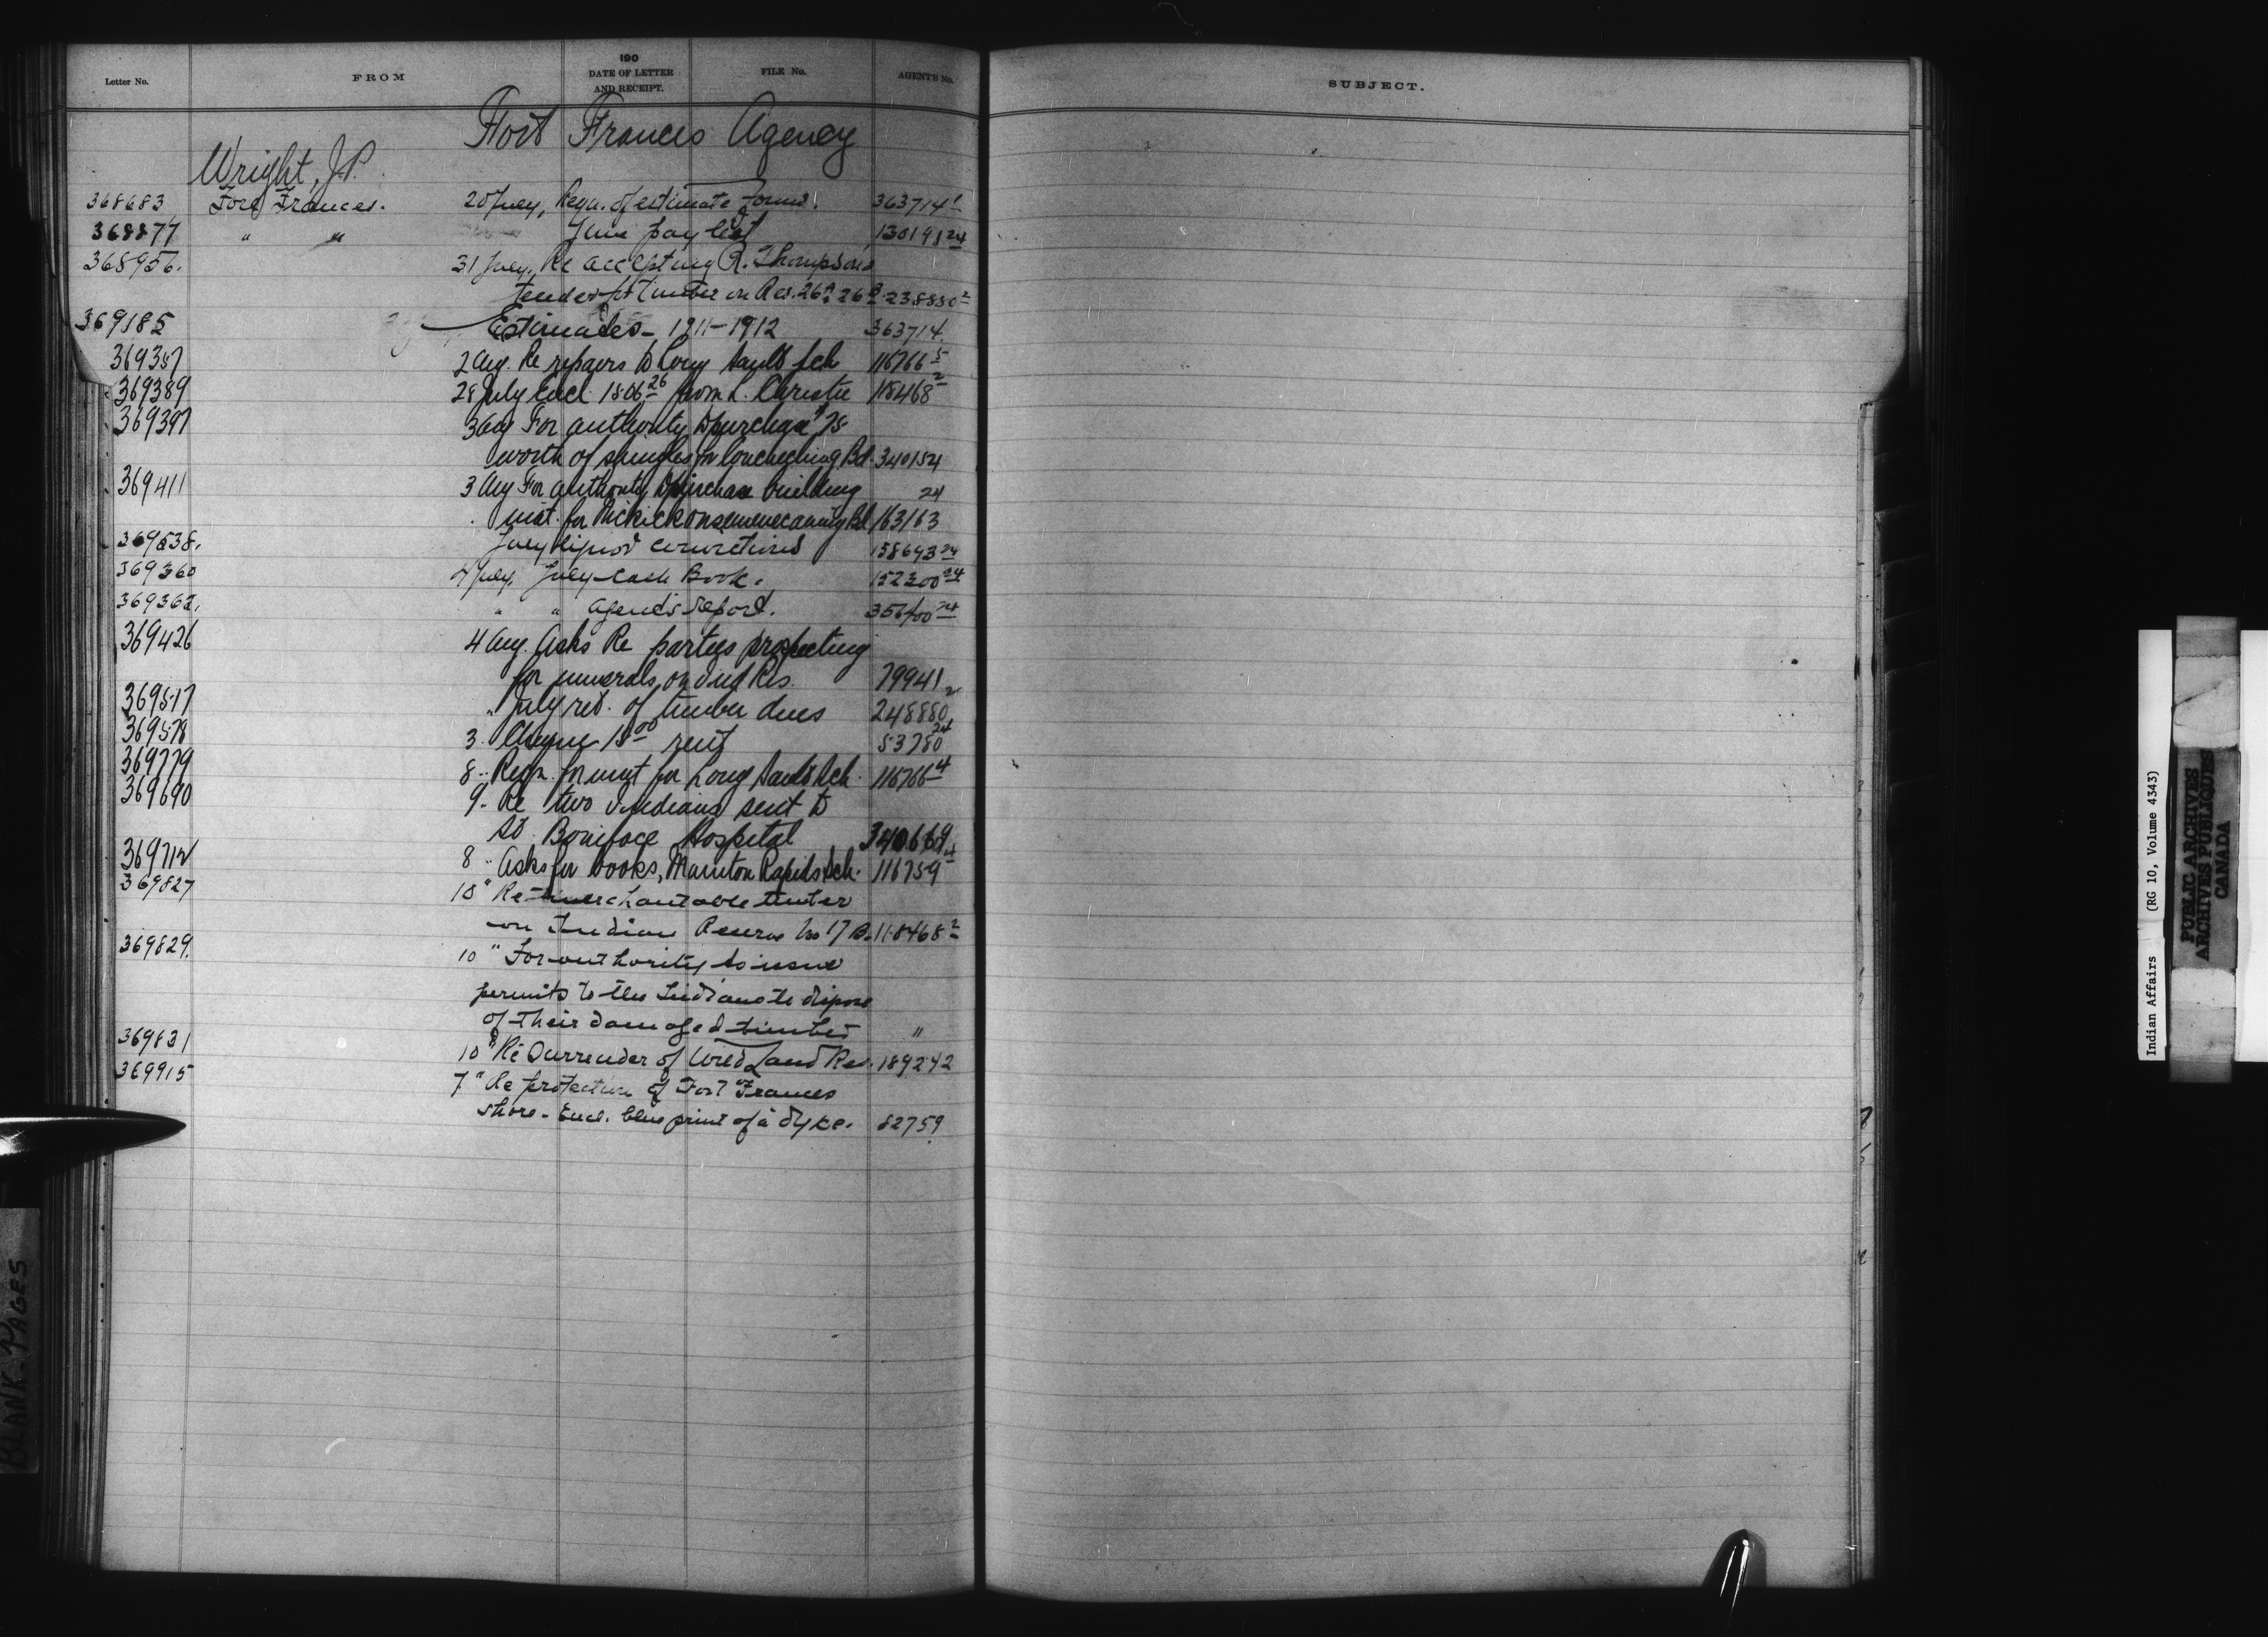 Letter No. FROM 190 DATE OF LETTER AND RECEIPT. FILE No. AGENT'S No.
SUBJECT.
Fort Frances Agency
Wright, J.P.
368683 Fort Frances. 20 July, Reqn. of estimate forms. 363714 1
368877 " " June pay list 130198 24
368956. 31 July, Re accepting R. Thompson's
tender for timber on Res. 26A 26B 238880 2
369185 Estimates - 1911-1912 363714
369357 2 Aug. Re repairs to Long Sault Sch 116766 5
369389 28 July Encl. 1806 26 from L. Christie 118468 2
369397 3 Aug For authority to purchase $75
worth of shingles for Couchiching Bd. 340154
369411 3 Aug For authority to purchase building 24
mat. for Bd 163163
369538. July liquor convictions 158643 24
369360 July, July Cash Book. 152300 24
369362. " " Agent's report. 356400 24
369426 4 Aug. Asks Re parties prospecting
for minerals on Ind Res. 79941
369517 " July ret. of timber dues 248880 2
369578 3. Cheque 15 00 rent 53780 24
369779 8 " Reqn. for mat for Long Sault Sch. 116766 4
369690 9. Re two Indians sent to
St. Boniface Hospital 340669
369712 8 " Asks for books, Manitou Rapids Sch. 116759 4
369827 10 " Re merchantable timber
on Indian Reserve No 17 B. 118468 2
369829. 10 " For authority to issue
permits to the Indians to dispose
of their damaged timber "
369831 10 " Re Surrender of Wild Land Res. 189242
369915 7 " Re protection of Fort Frances
shore - Encl. blue print of a dyke. 82759
BLANK PAGES
Indian Affairs (RG 10, Volume 4343)
PUBLIC ARCHIVES
ARCHIVES PUBLIQUES
CANADA